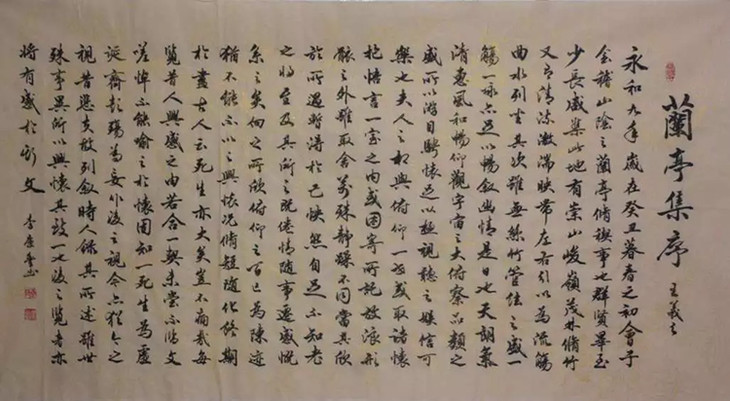 蘭亭集序 王羲之
永和九年歲在癸丑暮春之初會于
會稽山陰之蘭亭脩禊事也群賢畢至
少長咸集此地有崇山峻嶺茂林脩竹
又有清流激湍映帶左右引以為流觴
曲水列坐其次雖無絲竹管弦之盛一
觴一詠亦足以暢敘幽情是日也天朗氣
清惠風和暢仰觀宇宙之大俯察品類之
盛所以遊目騁懷足以極視聽之娛信可
樂也夫人之相與俯仰一世或取諸懷
抱悟言一室之內或因寄所託放浪形
骸之外雖取舍萬殊靜躁不同當其欣
於所遇暫得於己快然自足不知老
之將至及其所之既倦情隨事遷感慨
系之矣向之所欣俯仰之間已為陳迹
猶不能不以之興懷況脩短隨化終期
於盡古人云死生亦大矣豈不痛哉每
覽昔人興感之由若合一契未嘗不臨文
嗟悼不能喻之於懷固知一死生為虛
誕齊彭殤為妄作後之視今亦猶今之
視昔悲夫故列敘時人錄其所述雖世
殊事異所以興懷其致一也後之覽者亦
將有感於斯文